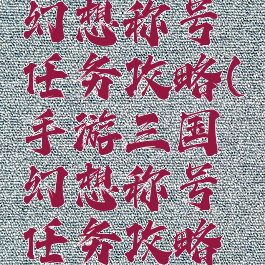 幻想称号
任务攻略(
手游三国
幻想称号
任务攻略